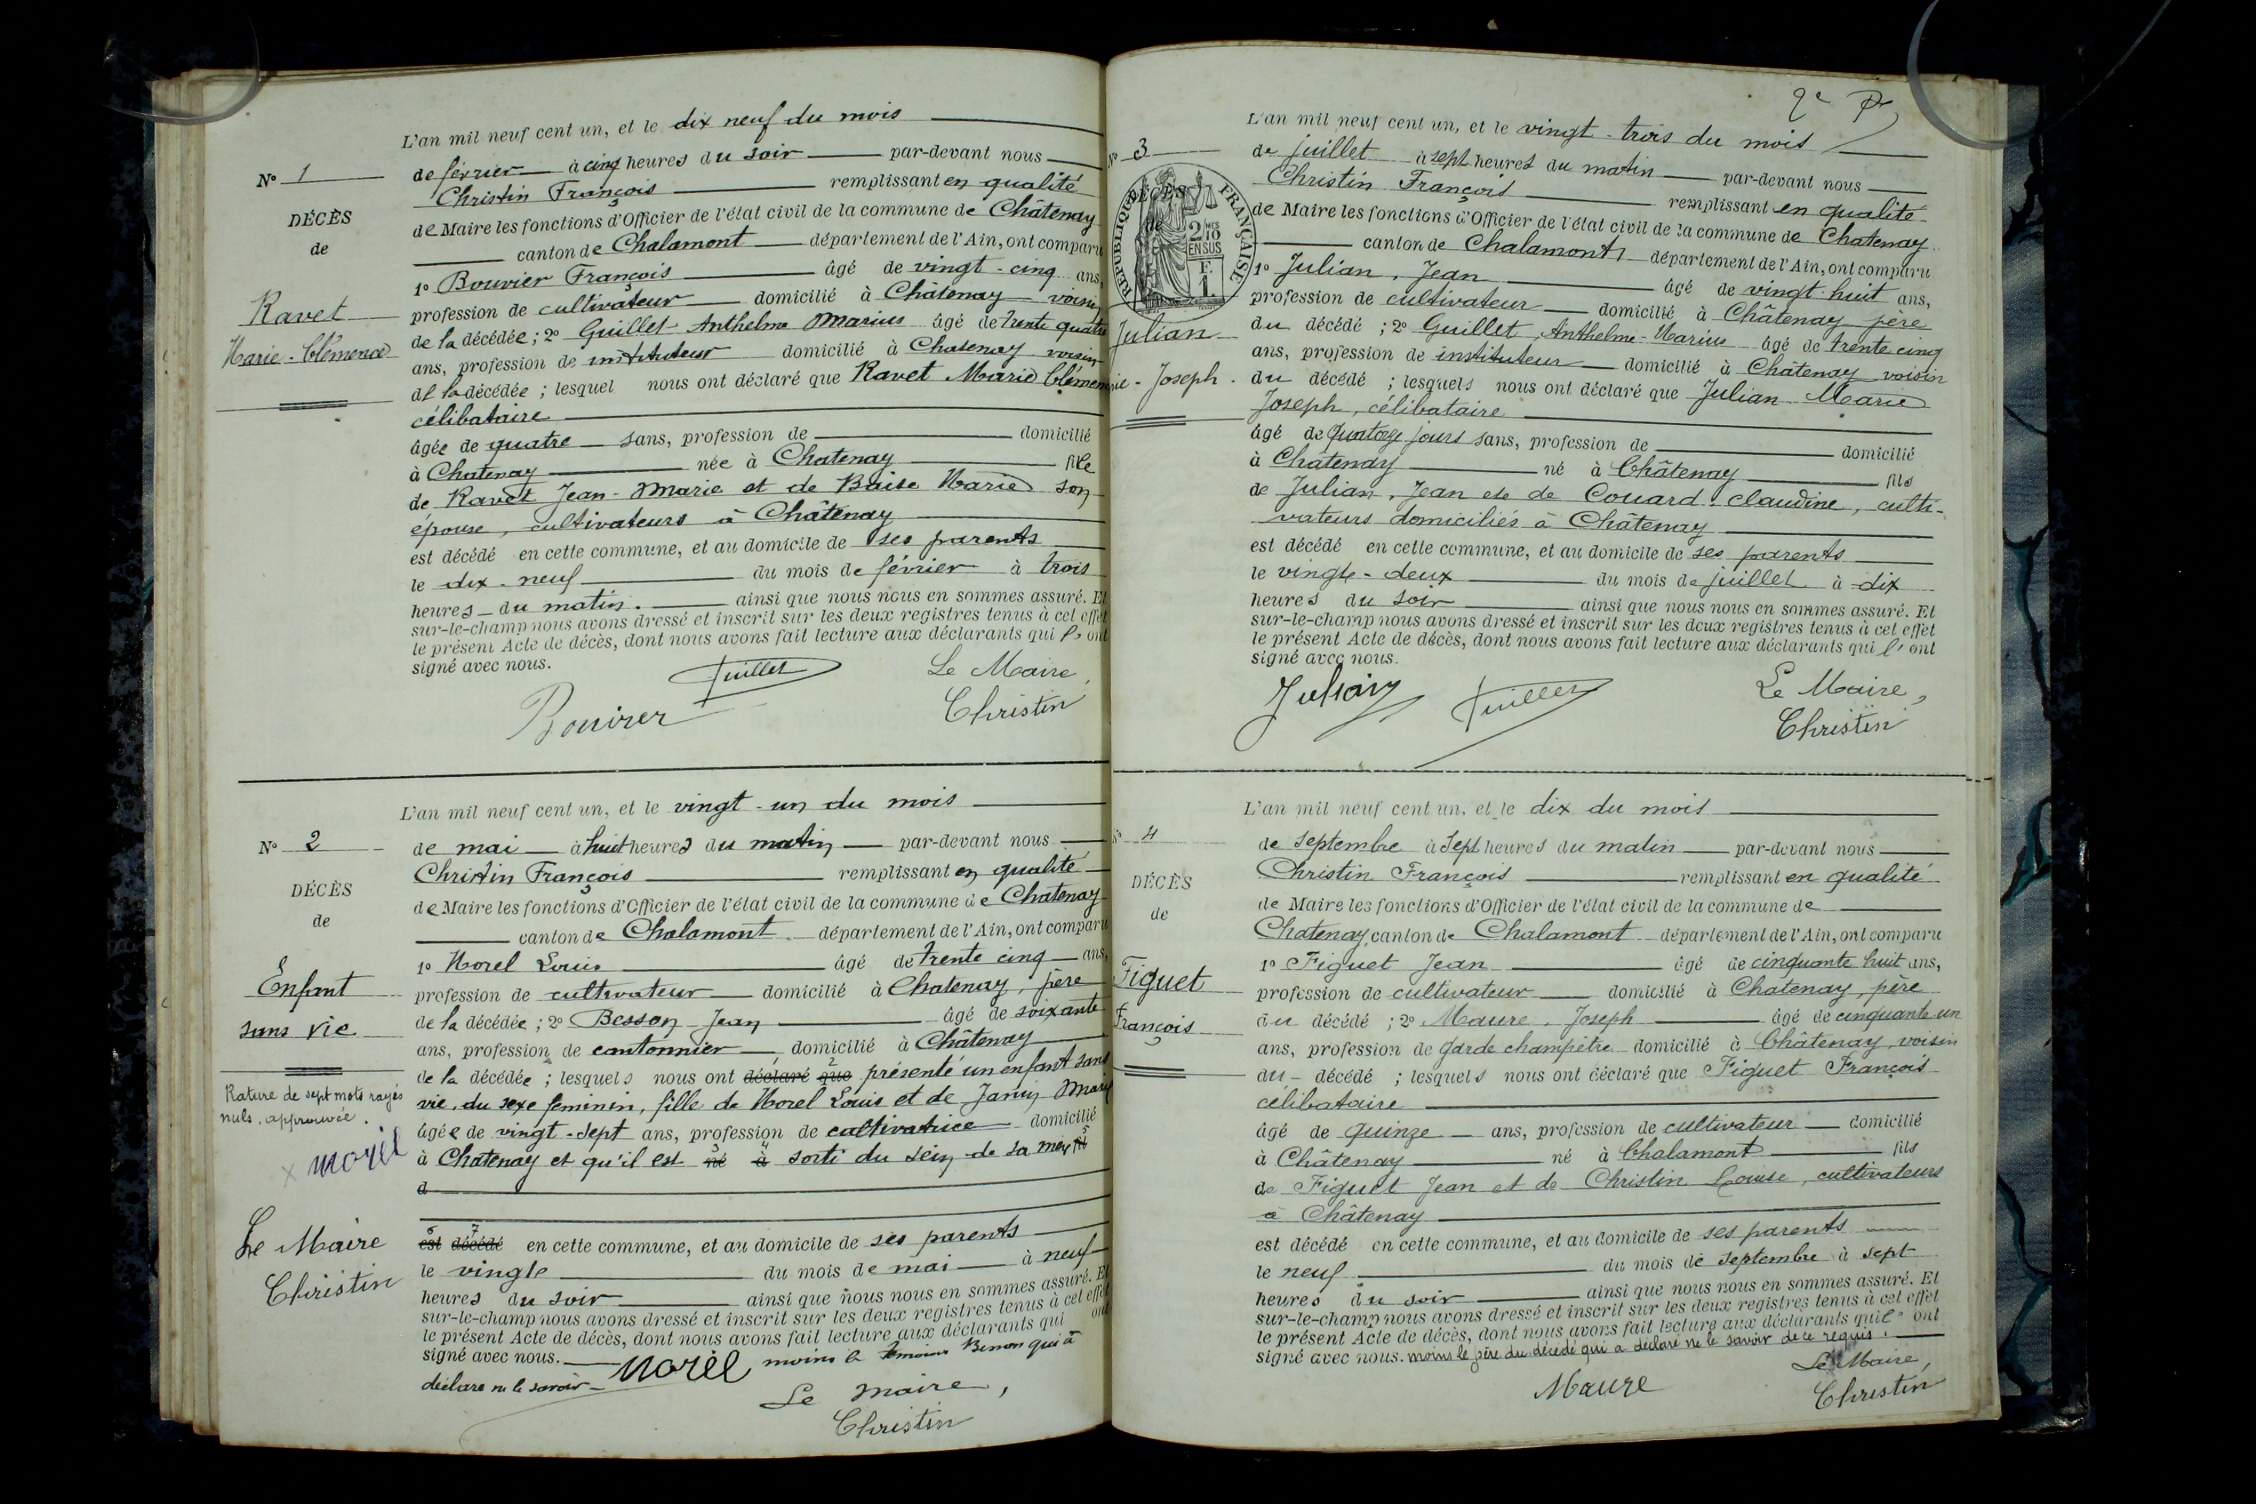 L'an mil neuf cent un, et le dix neuf du mois
N° 1
de février à cinq heures du soir par-devant nous
Christin François remplissant en qualité
DÉCÈS
de Maire les fonctions d'Officier de l'état civil de la commune de Châtenay
de
canton de Chalamont département de l'Ain, ont comparu
1° Bouvier François âgé de vingt-cinq ans,
Ravet
profession de cultivateur domicilié à Châtenay voisin
de la décédée ; 2° Guillet Anthelme Marius âgé de trente quatre
Marie-Clémence
ans, profession de instituteur domicilié à Chatenay voisin
de la décédée ; lesquel nous ont déclaré que Ravet Marie Clémence
célibataire
âgée de quatre sans, profession de domicilié
à Chatenay née à Chatenay fille
de Ravet Jean-Marie et de Baise Marie son
épouse, cultivateurs à Châtenay
est décédé en cette commune, et au domicile de ses parents
le dix-neuf du mois de février à trois
heures du matin. ainsi que nous nous en sommes assuré. Et
sur-le-champ nous avons dressé et inscrit sur les deux registres tenus à cet effet
le présent Acte de décès, dont nous avons fait lecture aux déclarants qui l'ont
signé avec nous.
Guillet
Le Maire,
Bouvier
Christin
L'an mil neuf cent un, et le vingt-un du mois
N° 2
de mai à huit heures du matin par-devant nous
Christin François remplissant en qualité
DÉCÈS
de Maire les fonctions d'Officier de l'état civil de la commune de Chatenay
de
canton de Chalamont département de l'Ain, ont comparu
1° Morel Louis âgé de trente cinq ans,
Enfant
profession de cultivateur domicilié à Chatenay, père
sans vie
de la décédée ; 2° Besson Jean âgé de soixante
ans, profession de cantonnier domicilié à Châtenay
de la décédée ; lesquels nous ont déclaré que présenté un enfant sans
Rature de sept mots rayés
nuls. approuvée.
vie, du sexe feminin, fille de Morel Louis et de Marie
âgée de vingt-sept ans, profession de cultivatrice domicilié
Morel
à Chatenay et qu'il est né à sorti du sein de sa mère fil
d
Le Maire
Christin
est décédé en cette commune, et au domicile de ses parents
le vingt du mois de mai à neuf
heures du soir ainsi que nous nous en sommes assuré. Et
sur-le-champ nous avons dressé et inscrit sur les deux registres tenus à cet effet
le présent Acte de décès, dont nous avons fait lecture aux déclarants qui ont
signé avec nous. moins le témoin Besson qui a
déclaré ne le savoir
Morel
Le Maire,
Christin
L'an mil neuf cent un, et le vingt-trois du mois
N° 3
de juillet à sept heures du matin par-devant nous
Christin François remplissant en qualité
DÉCÈS
de
RÉPUBLIQUE FRANÇAISE
2/10 EN SUS
F. 1.
de Maire les fonctions d'Officier de l'état civil de la commune de Chatenay
canton de Chalamont département de l'Ain, ont comparu
1° Julian, Jean âgé de vingt-huit ans,
profession de cultivateur domicilié à Châtenay père
Julian
du décédé ; 2° Guillet, Anthelme-Marius âgé de trente cinq
ans, profession de instituteur domicilié à Châtenay voisin
Joseph
du décédé ; lesquels nous ont déclaré que Julian Marie
Joseph, célibataire
âgé de Quatorze jours sans, profession de domicilié
à Châtenay né à Châtenay fils
de Julian, Jean et de Couard, Claudine, culti-
vateurs domiciliés à Châtenay
est décédé en cette commune, et au domicile de ses parents
le vingt-deux du mois de juillet à dix
heures du soir ainsi que nous nous en sommes assuré. Et
sur-le-champ nous avons dressé et inscrit sur les deux registres tenus à cet effet
le présent Acte de décès, dont nous avons fait lecture aux déclarants qui l'ont
signé avec nous.
Julian
Guillet
Le Maire,
Christin
L'an mil neuf cent un, et le dix du mois
N° 4
de septembre à sept heures du matin par-devant nous
Christin François remplissant en qualité
DÉCÈS
de Maire les fonctions d'Officier de l'état civil de la commune de
de
Chatenay canton de Chalamont département de l'Ain, ont comparu
1° Figuet Jean âgé de cinquante huit ans,
Figuet
profession de cultivateur domicilié à Châtenay, père
François
du décédé ; 2° Maure, Joseph âgé de cinquante un
ans, profession de garde champêtre domicilié à Châtenay, voisin
du décédé ; lesquels nous ont déclaré que Figuet François
célibataire
âgé de quinze ans, profession de cultivateur domicilié
à Châtenay né à Chalamont fils
de Figuet Jean et de Christin Louise, cultivateurs
à Châtenay
est décédé en cette commune, et au domicile de ses parents
le neuf du mois de septembre à sept
heures du soir ainsi que nous nous en sommes assuré. Et
sur-le-champ nous avons dressé et inscrit sur les deux registres tenus à cet effet
le présent Acte de décès, dont nous avons fait lecture aux déclarants qui l'ont
signé avec nous. moins le père du décédé qui a déclaré ne le savoir de ce requis.
Maure
Le Maire,
Christin